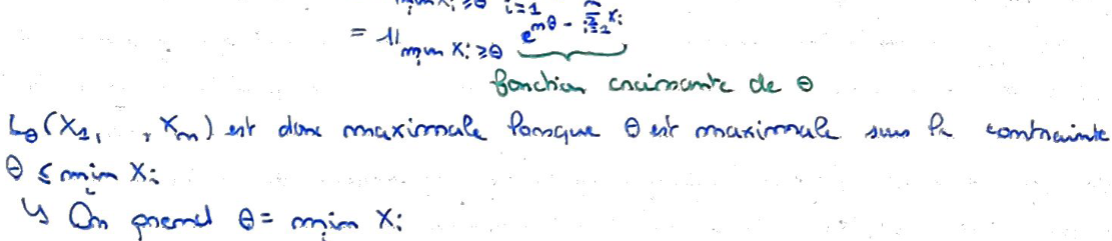 min Xi ≥ θ i=1
= 𝟙 min Xi ≥ θ e^{nθ - Σ_{i=1}^{n} Xi}
fonction croissante de θ
L_θ(X1, , Xn) est donc maximale lorsque θ est maximale sous la contrainte
θ ≤ min Xi
↳ On prend θ = min Xi